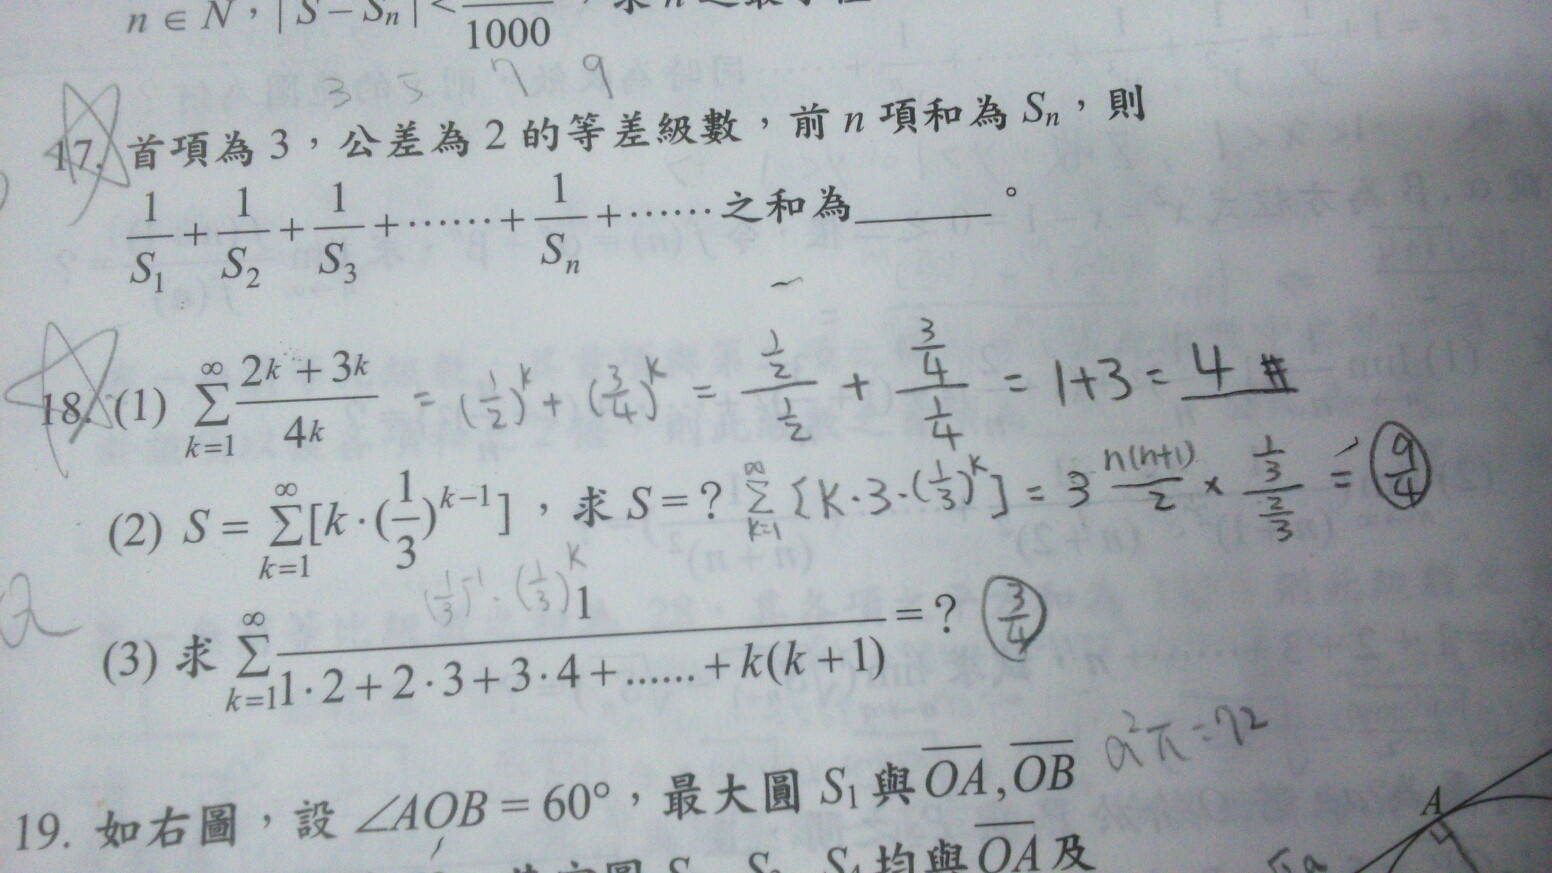 n ∈ N，| S − Sₙ | < —/1000
3 5 7 9
17. 首項為 3，公差為 2 的等差級數，前 n 項和為 Sₙ，則
1/S₁ + 1/S₂ + 1/S₃ + …… + 1/Sₙ + …… 之和為______。
18. (1) ∑_{k=1}^{∞} (2ᵏ + 3ᵏ)/4ᵏ = (1/2)ᵏ + (3/4)ᵏ = (1/2)/(1/2) + (3/4)/(1/4) = 1+3 = 4 #
(2) S = ∑_{k=1}^{∞} [k · (1/3)^{k−1}]，求 S = ? ∑_{k=1}^{∞} [k · 3 · (1/3)ᵏ] = 3 n(n+1)/2 × (1/3)/(2/3) = 9/4
(1/3)⁻¹ · (1/3)ᵏ
(3) 求 ∑_{k=1}^{∞} 1/(1 · 2 + 2 · 3 + 3 · 4 + ...... + k(k + 1)) = ? 3/4
a²π = 72
19. 如右圖，設 ∠AOB = 60°，最大圓 S₁ 與 O͞A, O͞B
均與 O͞A 及
A